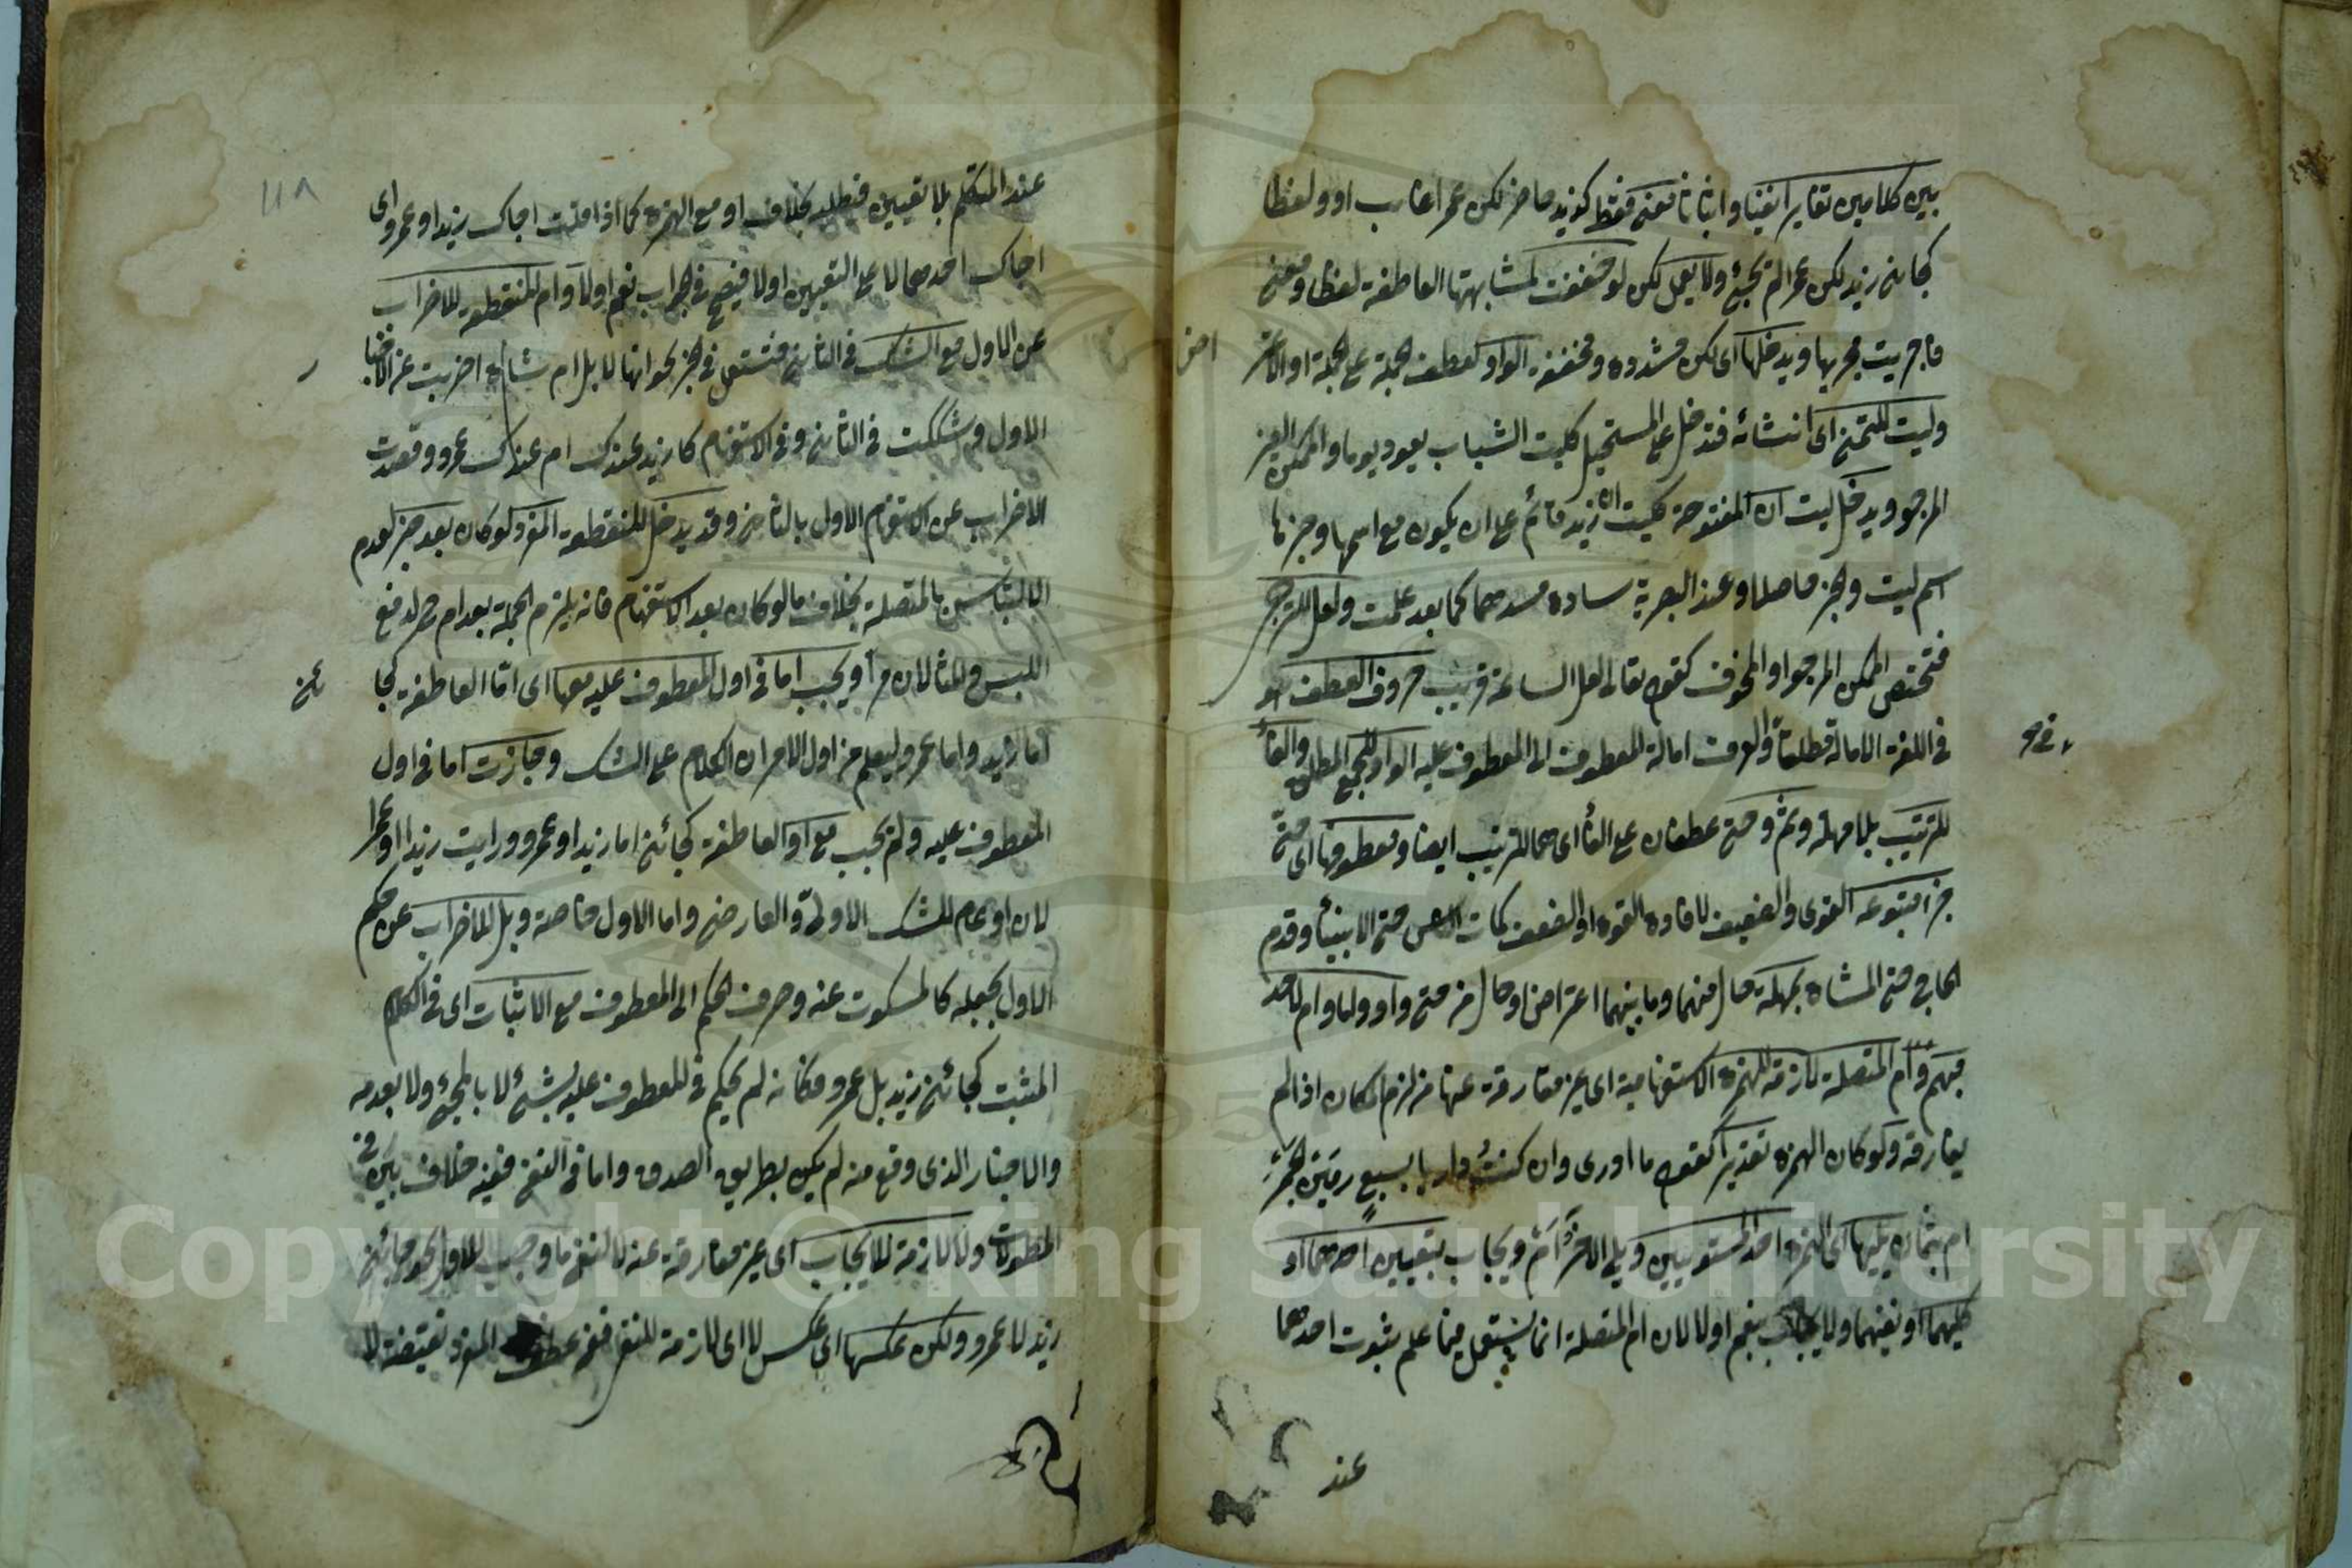 بين كلامين تغايرا نفيا واثباتا معنى فقط كزيد حاضر لكن عمرا غائب او ولفظا
كجاءنى زيد لكن عمرا لم يجئ ولا يعمل لكن لو خففت لمشابهتها العاطفة لفظا ومعنى
فاجريت مجريها ويدخلها اى لكن مشددة ومخففة الواو لعطف الجملة على الجملة او الاعتر
اض
وليت للتمنى اى انشائه فتدخل على المستحيل كليت الشباب يعود يوما والممكن الغير
المرجو ويدخل ليت ان المفتوحة كليت ان زيد قائم على ان يكون مع اسمها وخبرها
اسم ليت والخبر حاصلا وعند البصرية سادة مسدهما كما بعد علمت ولعل للترجى
فتختص الممكن المرجو او المخوف كقوله تعالى لعل الساعة قريب حروف العطف هو
فى اللغة الامالة مطلقا والعرف امالة المعطوف الى المعطوف عليه الواو للجمع المطلق والفاء
للترتيب بلا مهلة وثم وحتى عطفان على الفاء اى هما للترتيب ايضا ومعطوفها اى حتى
جزء متبوعه القوى والضعيف لافادة القوة او الضعف كمات الناس حتى الانبياء وقدم
الحاج حتى المشاة بمهلة حال منهما وما بينهما اعتراض او حال من حتى واو واما وام لاحد
مبهم وام المتصلة لازمة للهمزة الاستفهامية اى غير مفارقة عنها من لزم المكان اذا لم
يفارقه ولو كان الهمزة تقديرا كقوله ما ادرى وان كنت داريا بسبع رمين الجمر
ام بثمان يليها اى الهمزة احد المستويين ويلى الآخر ام ويجاب بتعيين احدهما او
كليهما او نفيهما ولا يجاب بنعم او لا لان ام المتصلة انما يستعمل فيما علم ثبوت احدهما
عند
عند المتكلم بلا تعيين فتطلبه بخلاف او مع الهمزة كما اذا قلت اجاك زيد او عمرو اى
اجاك احدهما لا على التعيين اولا فيصح فى الجواب نعم او لا وام المنقطعة للاضراب
عن الاول مع الشك فى الثانى فتستعمل فى الخبر نحو انها لابل ام شاة اضربت عن الاخبار
الاول وشككت فى الثانى وفى الاستفهام كازيد عندك ام عندك عمرو وقصدت
الاضراب عن الاستفهام الاول بالثانى وقد يدخل المنقطعة المفرد لو كان بعد خبر لعدم
الالتباس بالمتصلة بخلاف ما لو كان بعد الاستفهام فانه يلزم الجملة بعد ام لدفع
اللبس والمثالان مرا ويجب اما فى اول المعطوف عليه معها اى اما العاطفة كجا
ئنى
اما زيد واما عمرو ليعلم من اول الامر ان الكلام على الشك وجازت اما فى اول
المعطوف عليه ولم يجب مع او العاطفة كجائنى اما زيد او عمرو ورايت زيدا او عمرا
لان او عام للشك الاولى والعارضى واما الاول خاصة وبل للاضراب عن حكم
الاول بجعله كالمسكوت عنه وصرف الحكم الى المعطوف مع الاثبات اى فى الكلام
المثبت كجائنى زيد بل عمرو فكانه لم يحكم فى المعطوف عليه بشئ لا بالمجئ ولا بعدمه
والاخبار الذى وقع منه لم يكن بطريق الصدق واما فى النفى ففيه خلاف بين فى
المطولات ولا لازمة للايجاب اى غير مفارقة عنه لا لنفى ما وجب للاول نحو جائنى
زيد لا عمرو ولكن عكسها اى عكس لا اى لازمة للنفى ففى عطف المفرد نقيضة لا